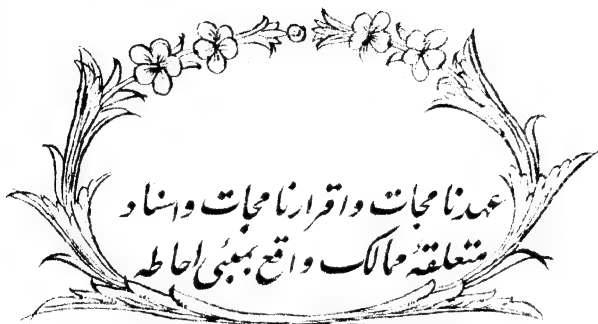 عہدنامجات واقرارنامجات واسناد
متعلقۂ ممالک واقع بمبئی احاطہ